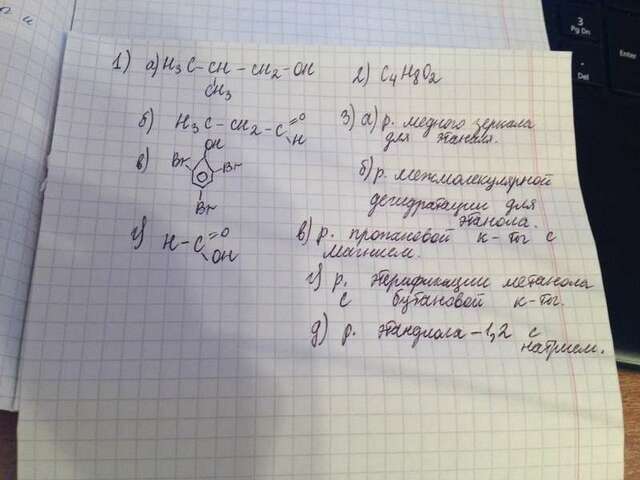 1) а) H3C-CH-CH2-OH
CH3
б) H3C-CH2-C=O
H
в) OH
Br Br
Br
г) H-C=O
OH
2) C4H8O2
3) а) р. медного зеркала
для этаналя.
б) р. межмолекулярной
дегидратации для
этанола.
в) р. пропановой к-ты с
магнием.
г) р. этерификации метанола
с бутановой к-ты.
д) р. этандиола-1,2 с
натрием.
3
Pg Dn
.
Del